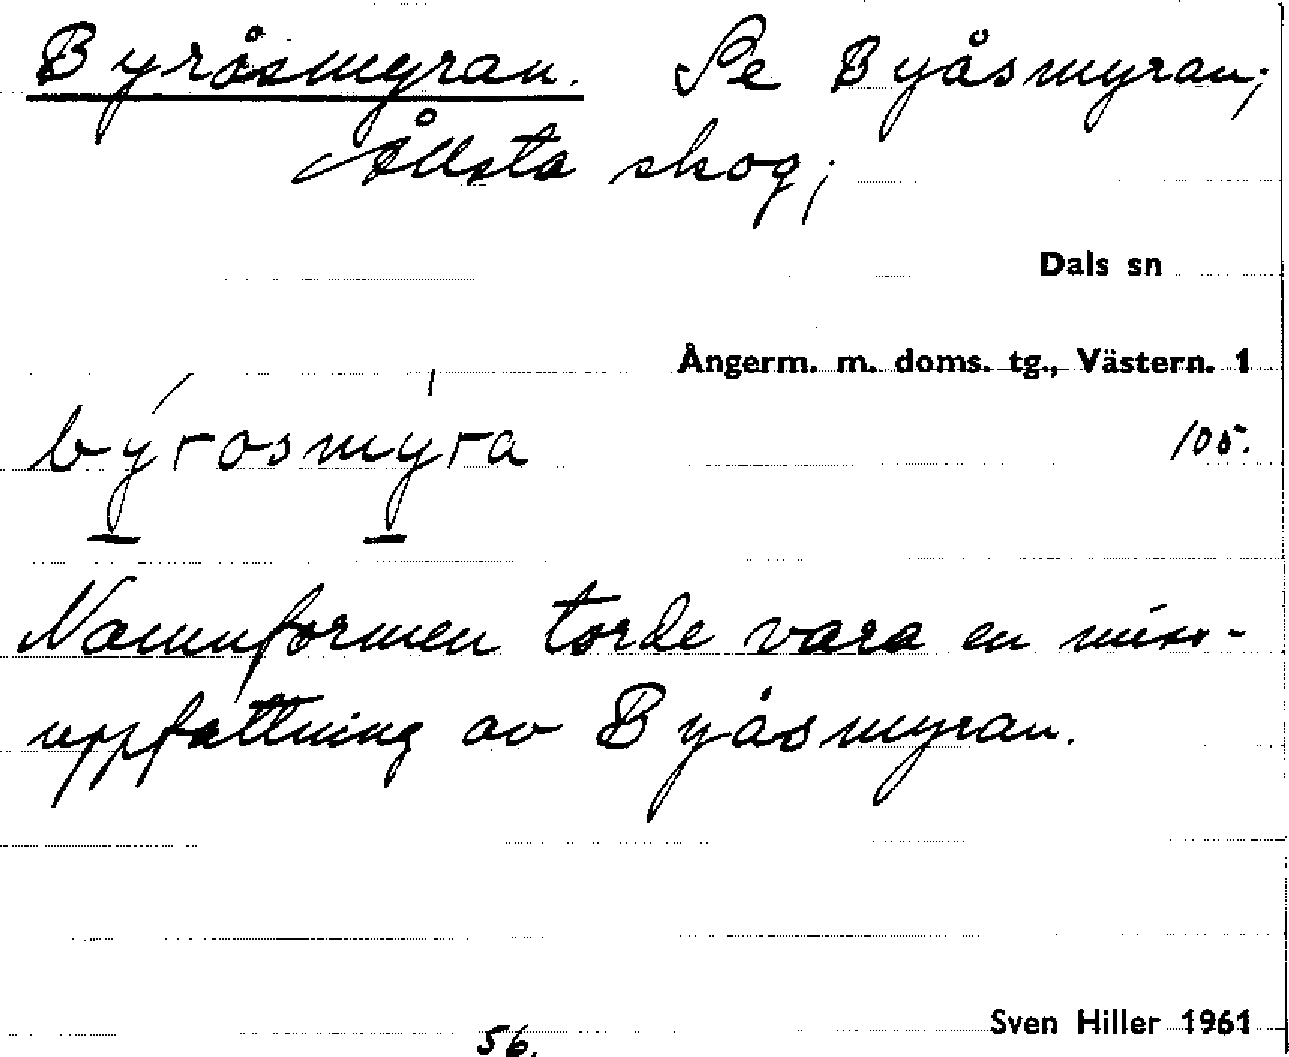 Byråsmyran. Se Byåsmyran;
Ållsta skog;
Dals sn
Ångerm. m. doms. tg., Västern. 1
býrosmýra
105.
Namnformen torde vara en miss-
uppfattning av Byåsmyran.
Sven Hiller 1961
56.